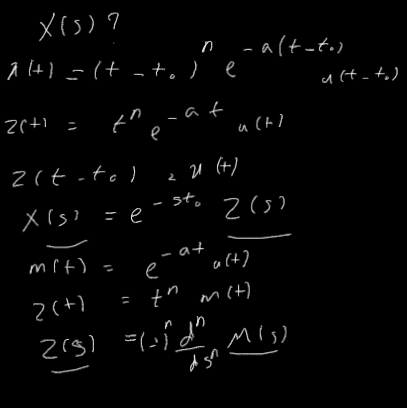 X(s) ?
x(t) = (t - t₀)ⁿ e^{-a(t-t₀)} u(t-t₀)
z(t) = tⁿ e^{-at} u(t)
z(t-t₀) = x(t)
X(s) = e^{-st₀} Z(s)
m(t) = e^{-at} u(t)
z(t) = tⁿ m(t)
Z(s) = (-)ⁿ dⁿ/dsⁿ M(s)